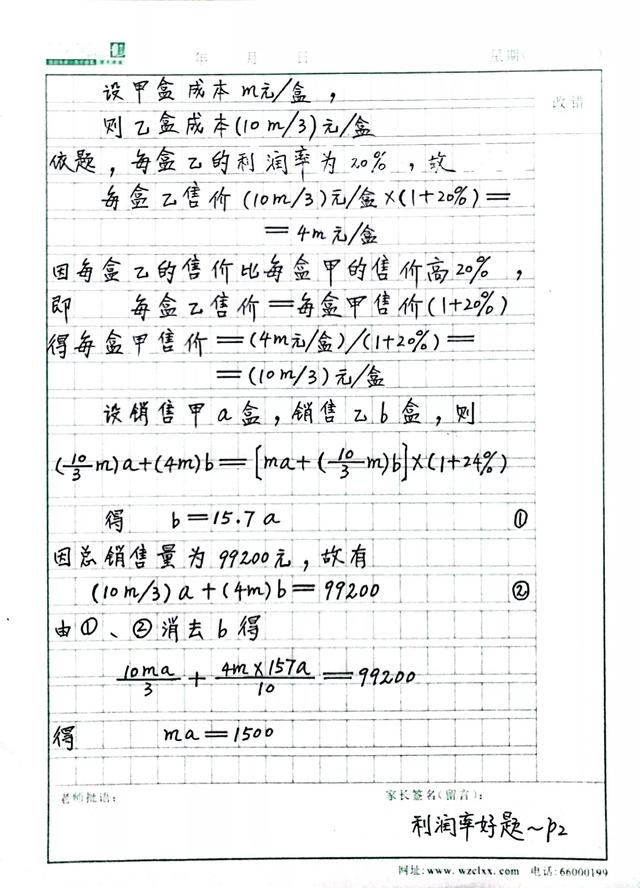 年 月 日 星期(
改错
设甲盒成本m元/盒,
则乙盒成本(10m/3)元/盒
依题,每盒乙的利润率为20%,故
每盒乙售价(10m/3)元/盒×(1+20%)=
=4m元/盒
因每盒乙的售价比每盒甲的售价高20%,
即 每盒乙售价=每盒甲售价(1+20%)
得每盒甲售价=(4m元/盒)/(1+20%)=
=(10m/3)元/盒
设销售甲a盒,销售乙b盒,则
(10/3 m)a+(4m)b=[ma+(10/3 m)b]×(1+24%)
得 b=15.7a ①
因总销售量为99200元,故有
(10m/3)a+(4m)b=99200 ②
由①、②消去b得
10ma/3 + 4m×157a/10 =99200
得 ma=1500
老师批语: 家长签名(留言):
利润率好题~p2
网址:www.wzclxx.com 电话:66000199